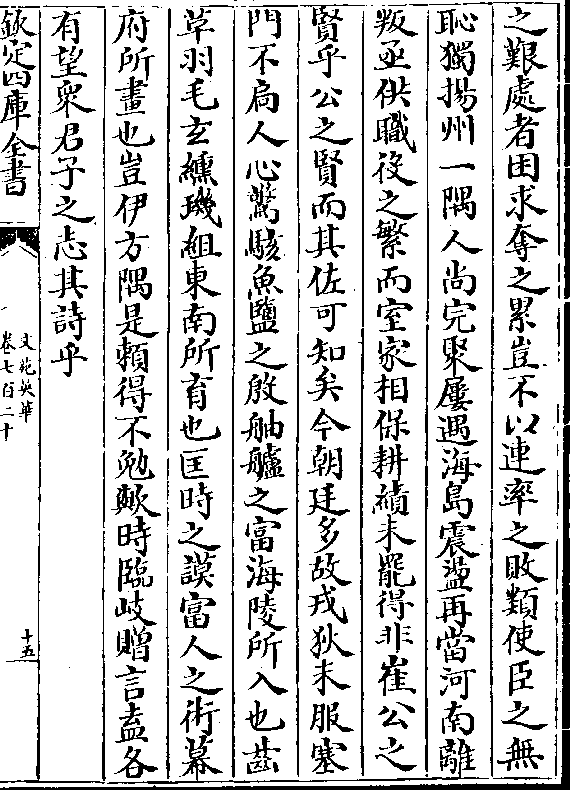 之艱處者困求奪之累豈不以連率之敗類使臣之無
恥獨揚州一隅人尚完聚屢遇海島震盪再當河南離
叛亟供職役之繁而室家相保耕績未罷得非崔公之
賢乎公之賢而其佐可知矣今朝廷多故戎狄未服塞
門不扄人心驚駭魚鹽之殷舳艫之富海陵所入也齒
草羽毛玄纁璣組東南所育也匡時之謨富人之術幕
府所畫也豈伊方隅是賴得不勉歟時臨岐贈言盍各
有望衆君子之志其詩乎
欽定四庫全書
文苑英華
卷七百二十
十五